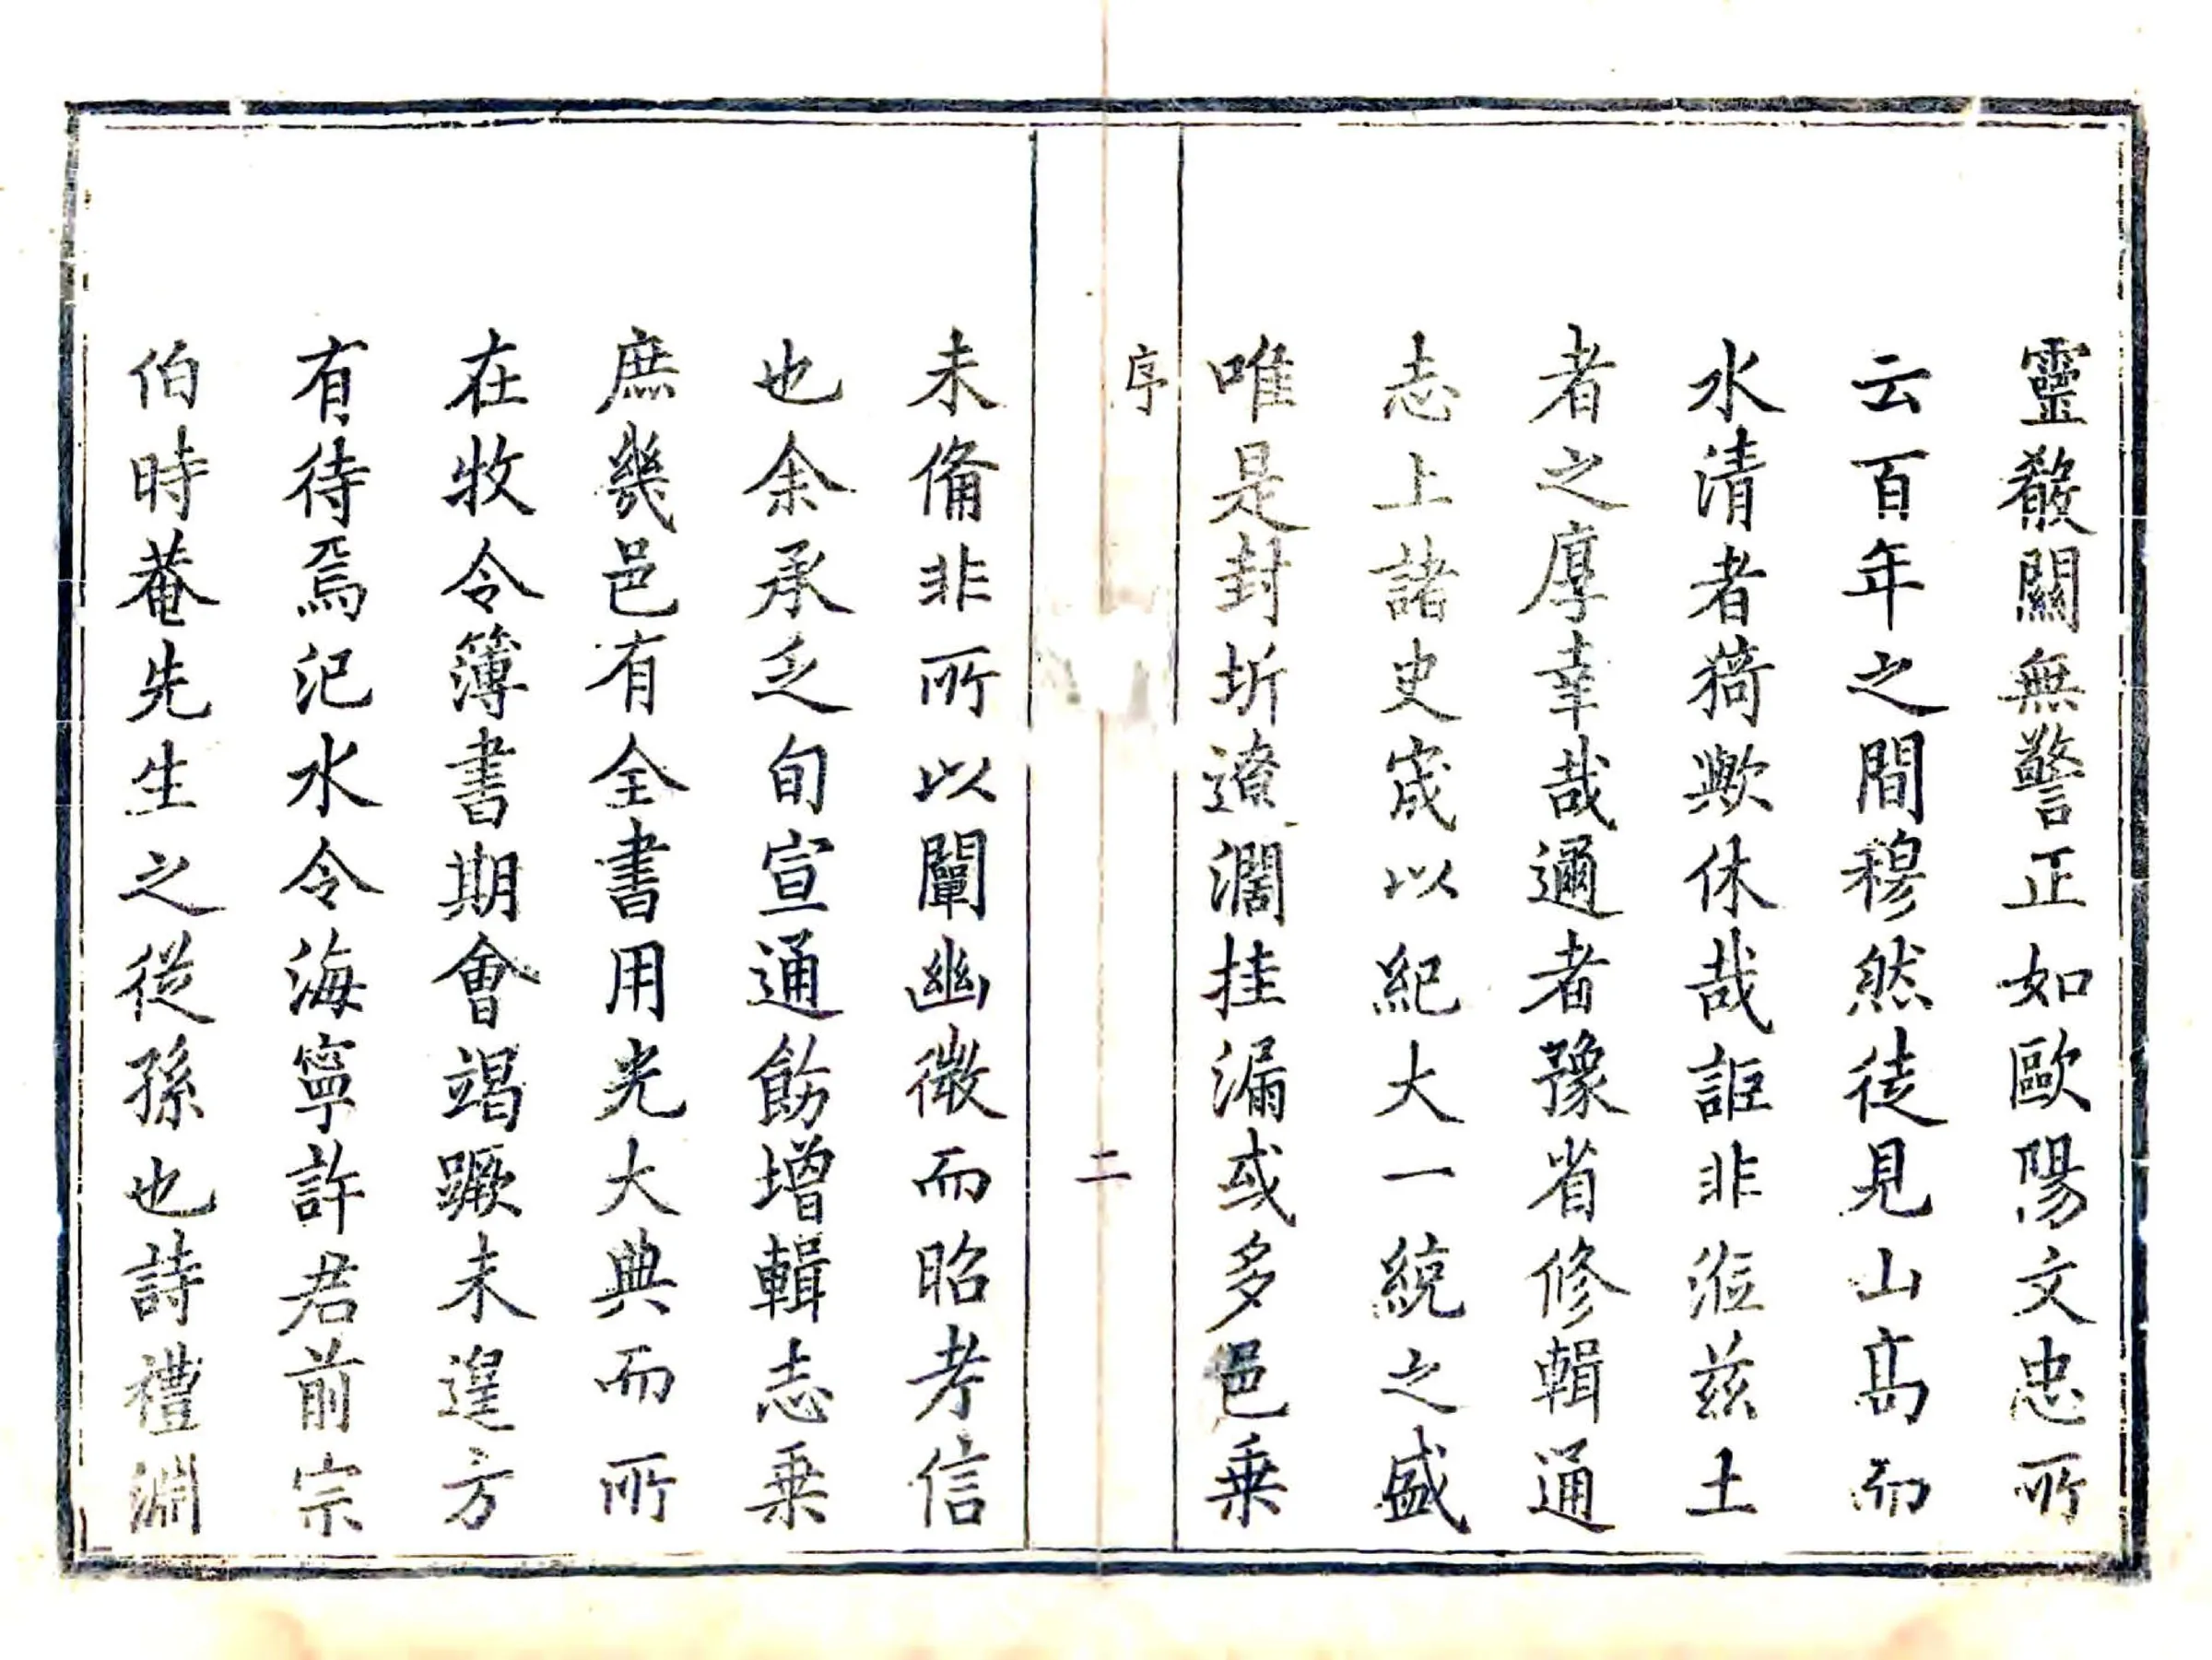 靈殽關無警正如歐陽文忠所
云百年之間穆然徒見山高而
水清者猗歟休哉詎非涖兹土
者之厚幸哉邇者豫省修輯通
志上諸史宬以紀大一統之盛
唯是封圻遼濶挂漏或多邑乗
序
二
未俻非所以闡幽微而昭考信
也余承乏旬宣通飭增輯志乗
庶幾邑有全書用光大典而所
在牧令簿書期會竭蹶未遑方
有待焉汜水令海寧許君前宗
伯時菴先生之從孫也詩禮淵